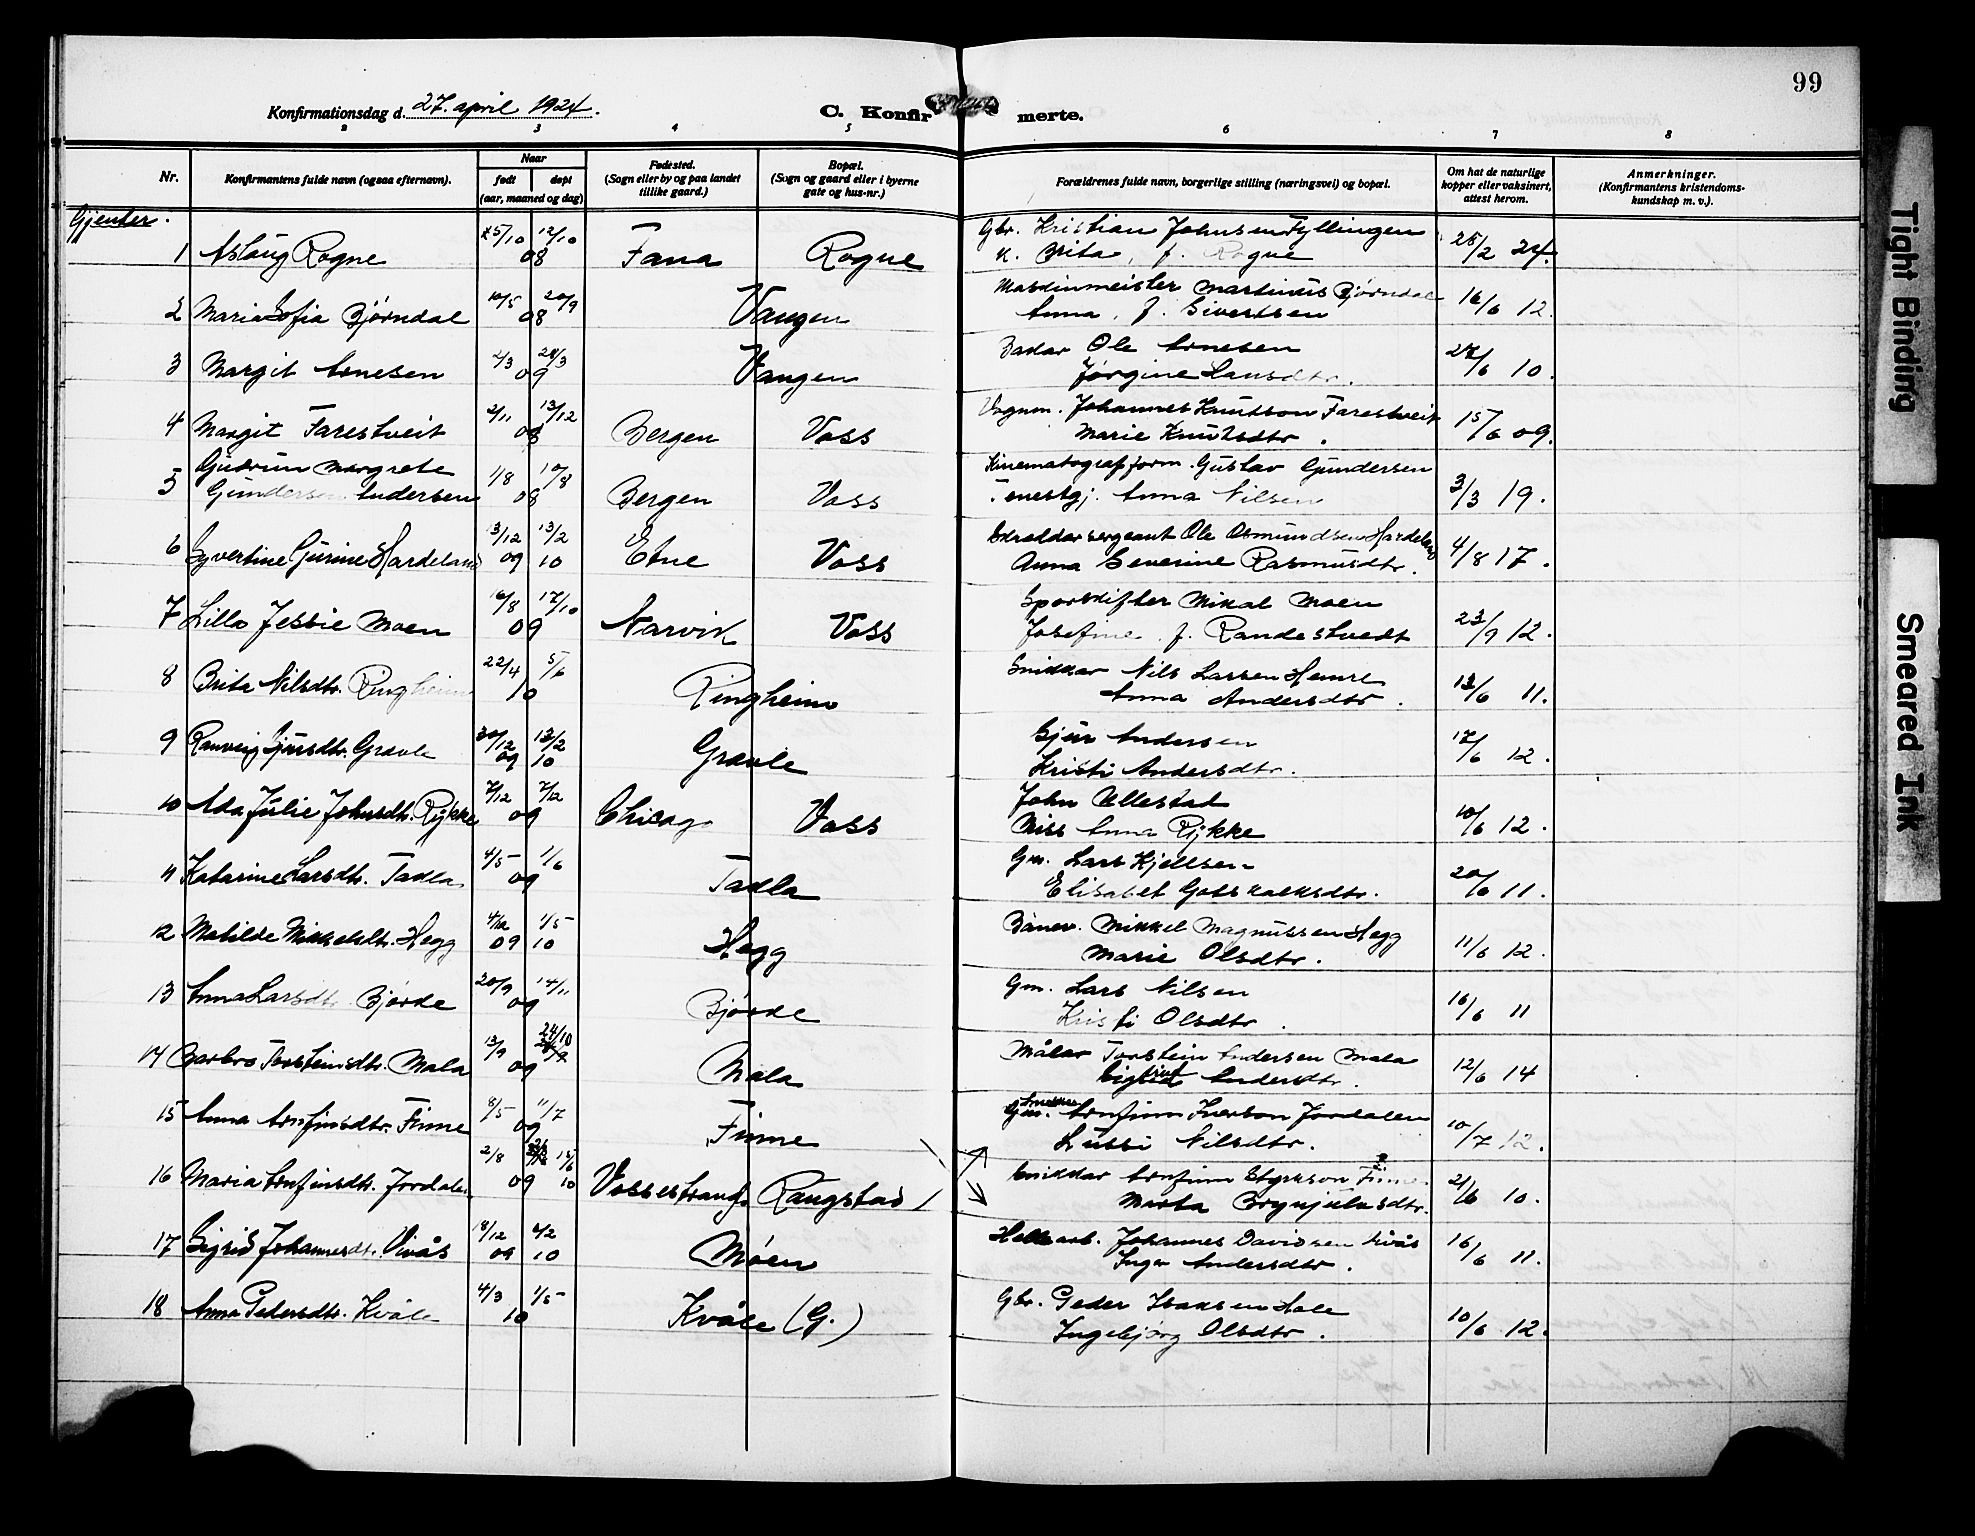 99
Konfirmationsdag d. 27. april 1924.
C. Konfirmerte.
2 3 4 5 6 7 8
Nr. Konfirmantens fulde navn (ogsaa efternavn). Naar født døpt (aar, maaned og dag) Fødested. (Sogn eller by og paa landet tillike gaard.) Bopæl. (Sogn og gaard eller i byerne gate og hus-nr.) Forældrenes fulde navn, borgerlige stilling (næringsvei) og bopæl. Om hat de naturlige kopper eller vaksinert, attest herom. Anmerkninger. (Konfirmantens kristendomskundskap m. v.).
Gjenter.
1 Aslaug Rogne 25/10 12/10 08 Fana Rogne Gbr. Kristian Johnsen Fyllingen 25/2 24.
K. Brita, f. Rogne
2 Maria Sofia Bjørndal 10/5 20/9 08 Vangen Maskinmeister Martinius Bjørndal 16/6 12.
Anna, f. Sivertsen
3 Margit Arnesen 2/3 28/3 09 Vangen Bakar Ole Arnesen 27/6 10.
Jørgine Hansdtr.
4 Margit Farestveit 2/11 13/12 08 Bergen Voss Vognm. Johannes Knutson Farestveit 15/6 09.
Marie Knutsdtr.
5 Gudrun Margrete
Gundersen Andersen 1/8 10/8 08 Bergen Voss Kinematografform. Gustav Gundersen 3/3 19.
Tenestgj. Anna Nilsen
6 Syvertine Gurine Hardeland 13/12 09 13/2 10 Etne Voss Skraddarsergeant Ole Osmundsen Hardeland 4/8 17.
Anna Severine Rasmusdtr.
7 Lilla Jessie Moen 16/8 17/10 09 Narvik Voss Sporskifter Mikal Moen 23/9 12.
Josefine f. Randestvedt
8 Brita Nilsdtr. Ringheim 22/4 5/6 10 Ringheim Snikkar Nils Larsen Hemre 13/6 11.
Anna Andersdtr.
9 Ranveig Gjursdtr. Gravle 30/12 09 13/2 10 Gravle Gjur Andersen 17/6 12.
Kristi Andersdtr.
10 Ada Julie Johnsdtr. Rykke 7/12 7/12 09 Chicago Voss John Ullestad 10/6 12.
Miss Anna Rykke
11 Katarine Larsdtr. Tadla 4/5 1/6 09 Tadla Gm. Lars Kjellsen 20/6 11.
Elisabet Gotskalksdtr.
12 Matilde Mikkelsdtr. Hegg 4/12 09 1/5 10 Hegg Banev. Mikkel Magnussen Hegg 11/6 12.
Marie Olsdtr.
13 Anna Larsdtr. Bjørke 20/9 14/11 09 Bjørke Gm. Lars Nilsen 16/6 11
Kristi Olsdtr.
14 Barbro Torsteinsdtr. Mala 13/9 24/10 09 Mala Målar Torstein Andersen Mala 12/6 14
Andersdtr.
15 Anna Arnfinsdtr. Finne 8/5 11/7 09 Finne Arnfinn Iverson Jordalen 10/7 12.
Lussi Nilsdtr.
16 Maria Arnfinsdtr. Jordalen 2/8 09 15/6 10 Vossestrand Raugstad Snikkar Arnfinn Styrkson Finne 21/6 10.
Marta Brynjulvsdtr.
17 Sigrid Johannesdt. Vivås 18/12 09 6/2 10 Møen Johannes Davidsen Vivås 16/6 11.
Inga Andersdtr.
18 Anna Pedersdtr. Kvåle 4/3 1/5 10 Kvåle (G.) Gbr. Peder Isaksen Hole 10/6 12.
Ingebjørg Olsdtr.
Tight Binding
Smeared Ink